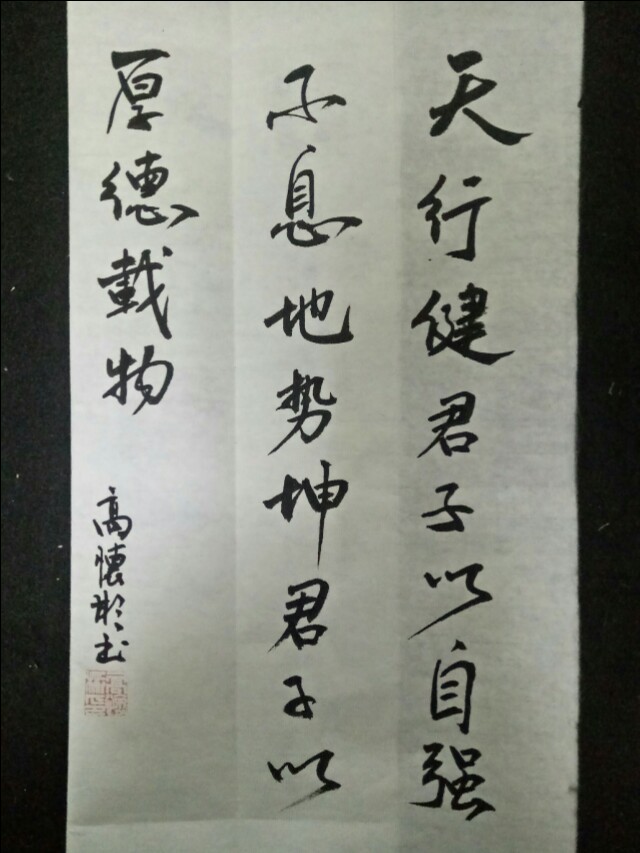 天行健君子以自强
不息地势坤君子以
厚德载物
高怀彬书